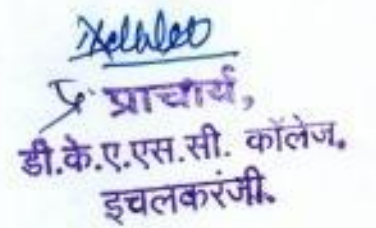 प्र प्राचार्य,
डी.के.ए.एस.सी. कॉलेज,
इचलकरंजी.